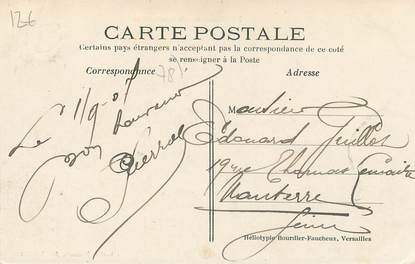 12€
CARTE POSTALE
Certains pays étrangers n'acceptant pas la correspondance de ce coté
se renseigner à la Poste
Correspondance
78
Adresse
Le 1/9-07
bon souvenir
Pierrot
Monsieur
Edouard Juillot
19 rue Thomas Lemaitre
Nanterre
Seine
Héliotypie Bourdier-Faucheux, Versailles